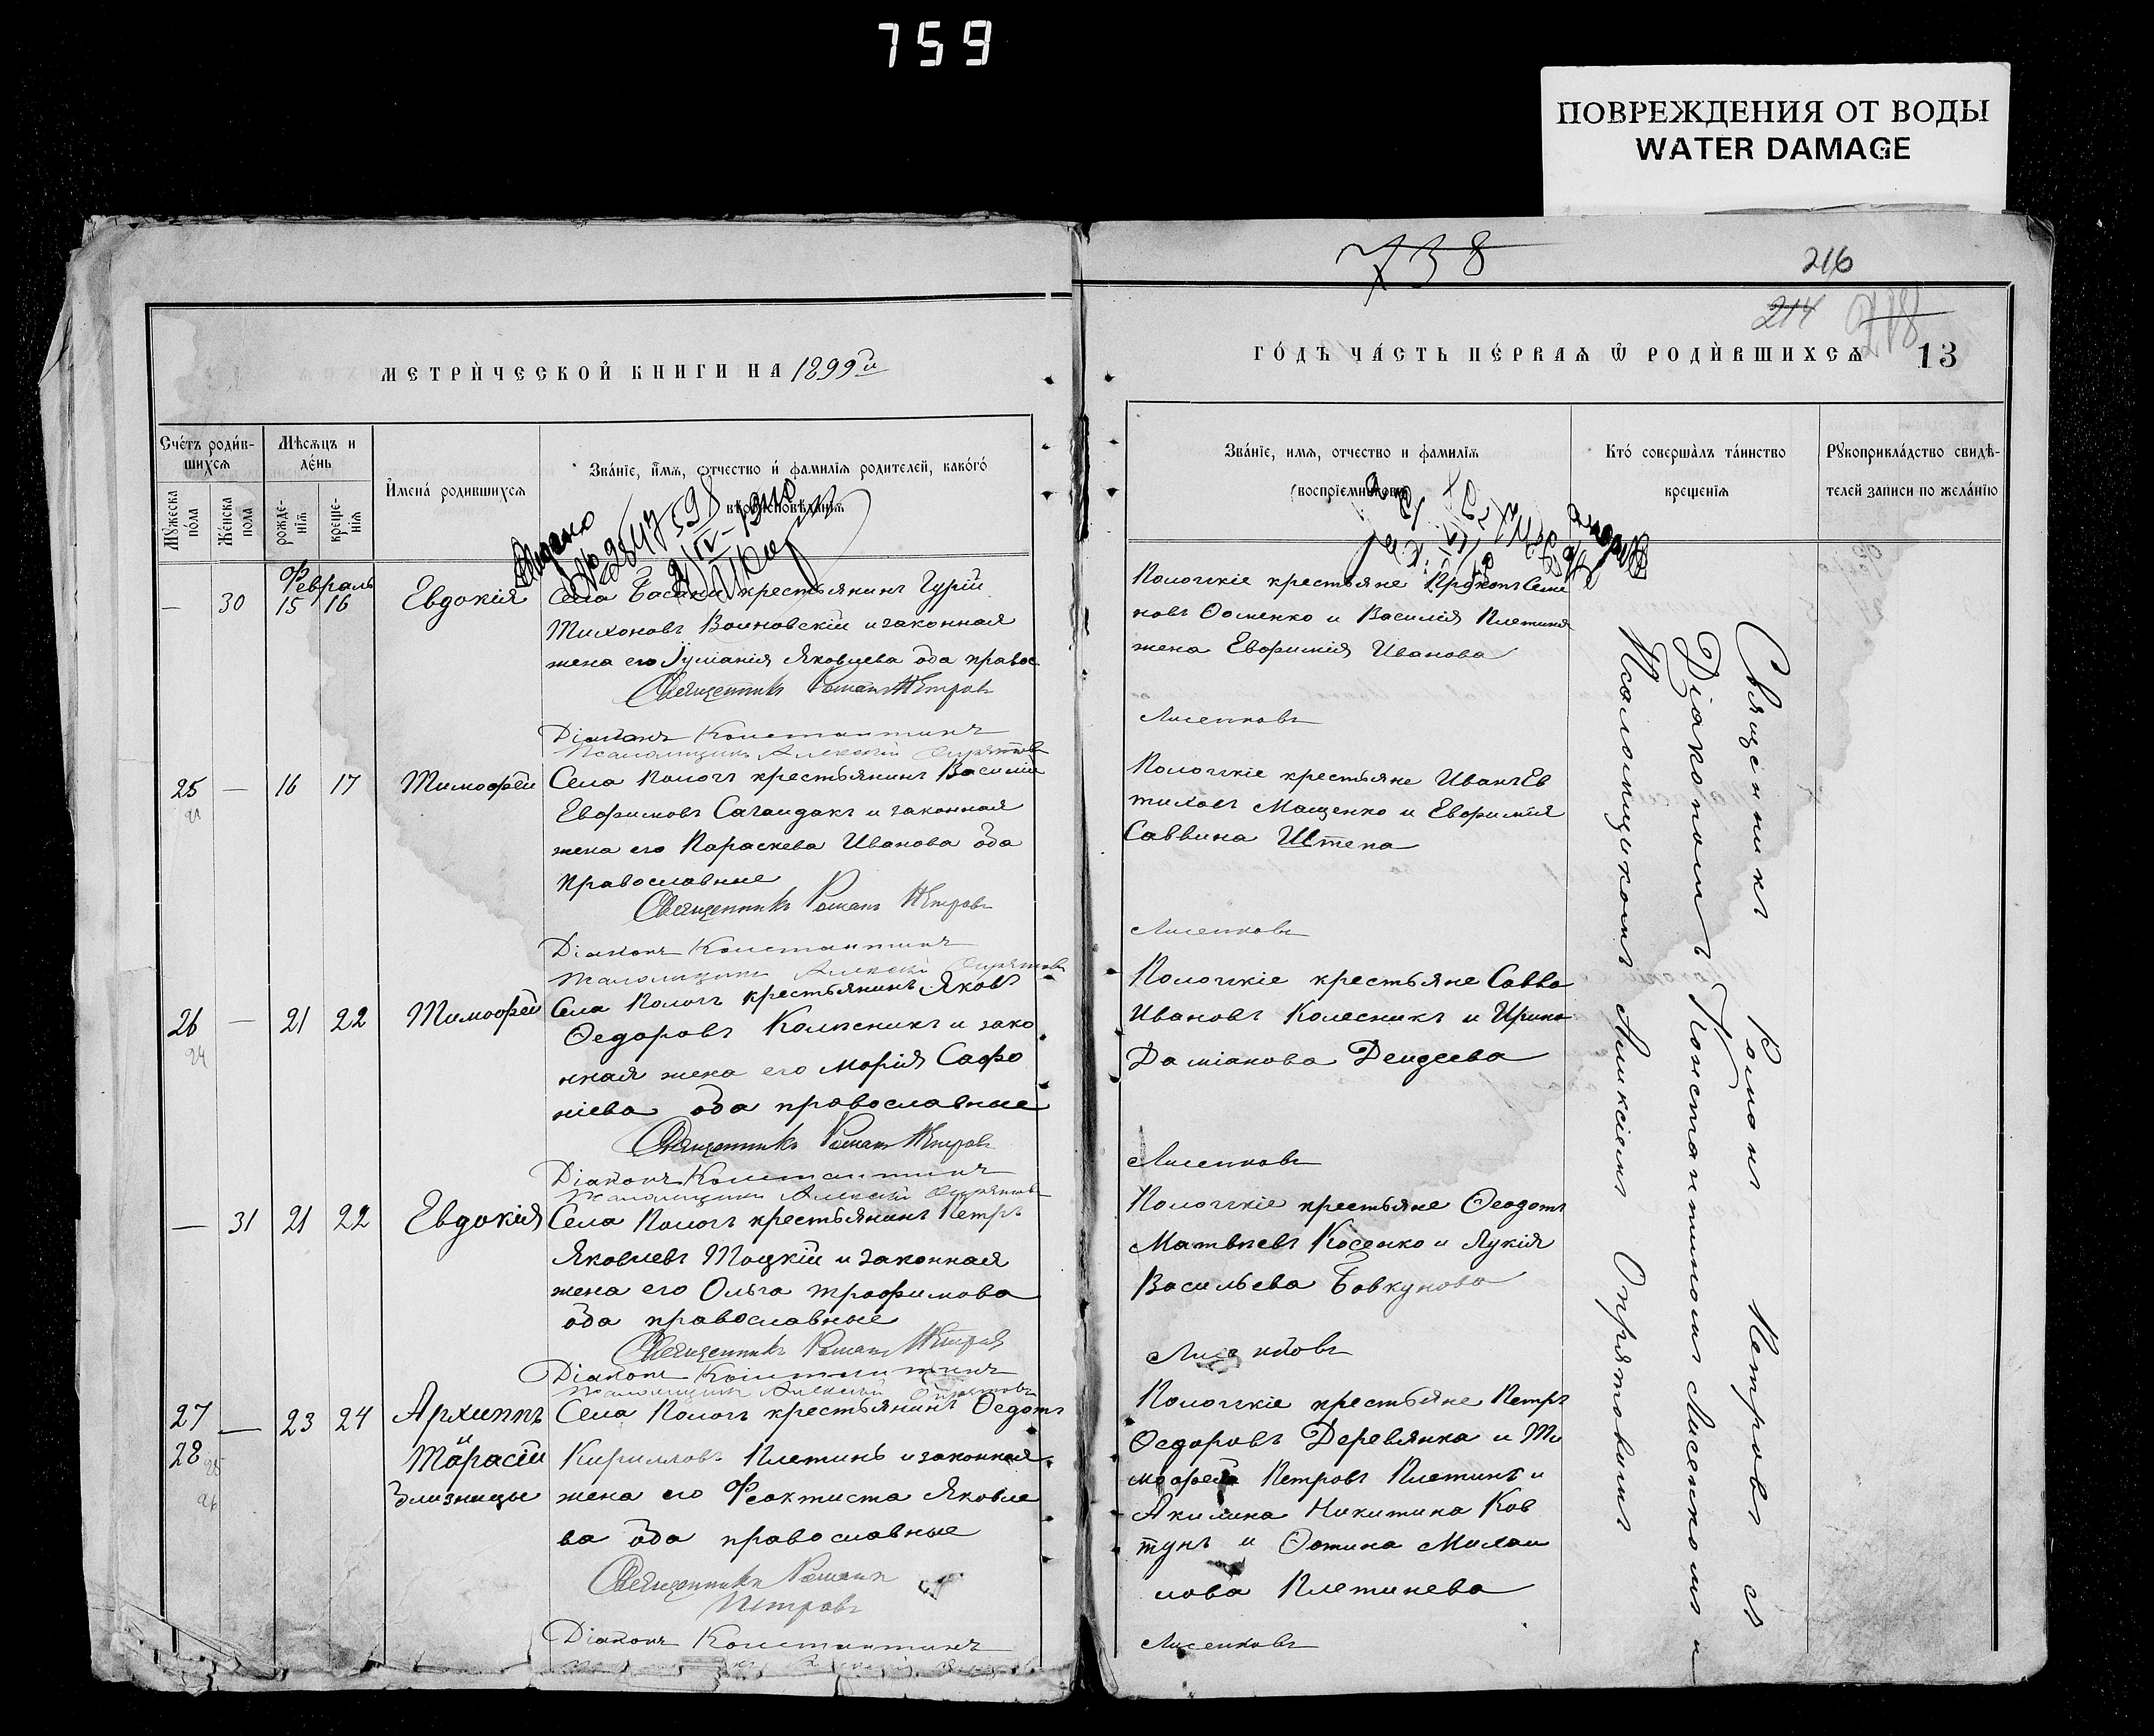 759
ПОВРЕЖДЕНИЯ ОТ ВОДЫ
WATER DAMAGE
738
216
214
218
МЕТРИ́ЧЕСКОЙ КНИГИ НА 1899й
ГО́ДЪ ЧА́СТЬ ПЕ́РВАѦ Ѡ҆ РОДИ́ВШИХСѦ
13
Сче́тъ роди́в-
шихсѧ
Мѣ́сѧцъ и
де́нь
Мꙋ́жеска
по́ла
Же́нска
пола̀
рожде́-
нїѧ
креще́-
нїѧ
И҆мена̀ родившихсѧ
Зва́нїе, и҆́мѧ, ѻ҆́тчество и҆ фами́лїѧ родителей, како́гѡ
вѣроисповѣданїѧ
Зва́нїе, имѧ, отчество и фами́лїѧ
воспрїемниковъ
Кто̀ соверша́лъ та́инство
креще́нїѧ
Рꙋкоприкла́дство свидѣ́-
телей записи по жела́нїю
Выдано
№ 2847598
Февраль
— 30 15 16 Евдокія
Села Басани крестьянинъ Гурій
Тихоновъ Воиновскій и законная
жена его Іуліанія Яковлева оба правос
Священникъ Романъ Петровъ
Діаконъ Константинъ
Псаломщикъ Алексѣй Опрятовъ
Пологскіе крестьяне Прокопъ Семе
новъ Ѳоменко и Василія Плетиня
жена Евфимія Иванова
Лисенковъ
25 — 16 17 Тимоѳей
Села Пологъ крестьянинъ Василій
Евфимовъ Сагайдакъ и законная
жена его Параскева Иванова оба
православные
Священникъ Романъ Петровъ
Діаконъ Константинъ
Псаломщикъ Алексѣй Опрятовъ
Пологскіе крестьяне Иванъ Ев
тиховъ Мащенко и Евфимія
Саввина Штепа
Лисенковъ
26 — 21 22 Тимоѳей
24
Села Пологъ крестьянинъ Яковъ
Ѳедоровъ Колѣсникъ и зако
нная жена его Марія Сафо
ніева оба православные
Священникъ Романъ Петровъ
Діаконъ Константинъ
Псаломщикъ Алексѣй Опрятовъ
Пологскіе крестьяне Савва
Ивановъ Колесникъ и Ирина
Даміанова Дейдеева
Лисенковъ
— 31 21 22 Евдокія
Села Пологъ крестьянинъ Петръ
Яковлевъ Тоцкій и законная
жена его Ольга Трофимова
оба православные
Священникъ Романъ Петровъ
Діаконъ Константинъ
Псаломщикъ Алексѣй Опрятовъ
Пологскіе крестьяне Ѳеодотъ
Матвѣевъ Косенко и Лукія
Васильева Бовкунова
Лисенковъ
27 — 23 24 Архиппъ
и
28 Тарасій
25
26
близнецы
Села Пологъ крестьянинъ Ѳедотъ
Кирилловъ Плетинь и законная
жена его Феоктиста Яковле
ва оба православные
Священникъ Романъ
Петровъ
Діаконъ Константинъ
Пологскіе крестьяне Петръ
Ѳедоровъ Деревянка и Ти
моѳей Петровъ Плетинь и
Акилина Никитина Ков
тунъ и Ѳотина Михаи
лова Плетинева
Лисенковъ
Священникъ Романъ Петровъ съ
Діакономъ Константиномъ Лисенковымъ и
Псаломщикомъ Алексіемъ Опрятовымъ